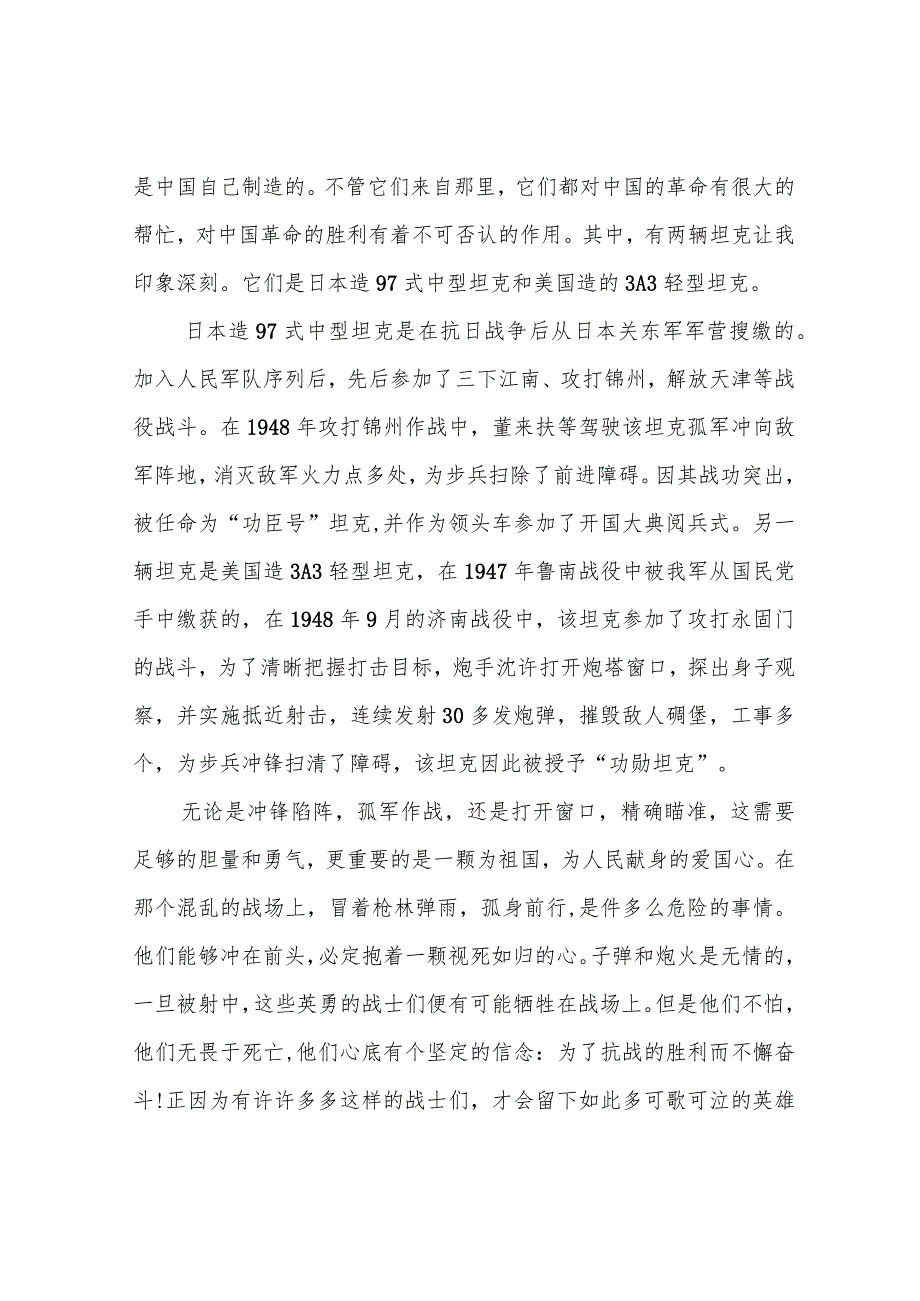 是中国自己制造的。不管它们来自那里，它们都对中国的革命有很大的
帮忙，对中国革命的胜利有着不可否认的作用。其中，有两辆坦克让我
印象深刻。它们是日本造97式中型坦克和美国造的3A3轻型坦克。
日本造97式中型坦克是在抗日战争后从日本关东军军营搜缴的。
加入人民军队序列后，先后参加了三下江南、攻打锦州，解放天津等战
役战斗。在1948年攻打锦州作战中，董来扶等驾驶该坦克孤军冲向敌
军阵地，消灭敌军火力点多处，为步兵扫除了前进障碍。因其战功突出，
被任命为“功臣号”坦克,并作为领头车参加了开国大典阅兵式。另一
辆坦克是美国造3A3轻型坦克，在1947年鲁南战役中被我军从国民党
手中缴获的，在1948年9月的济南战役中，该坦克参加了攻打永固门
的战斗，为了清晰把握打击目标，炮手沈许打开炮塔窗口，探出身子观
察，并实施抵近射击，连续发射30多发炮弹，摧毁敌人碉堡，工事多
个，为步兵冲锋扫清了障碍，该坦克因此被授予“功勋坦克”。
无论是冲锋陷阵，孤军作战，还是打开窗口，精确瞄准，这需要
足够的胆量和勇气，更重要的是一颗为祖国，为人民献身的爱国心。在
那个混乱的战场上，冒着枪林弹雨，孤身前行,是件多么危险的事情。
他们能够冲在前头，必定抱着一颗视死如归的心。子弹和炮火是无情的，
一旦被射中，这些英勇的战士们便有可能牺牲在战场上。但是他们不怕，
他们无畏于死亡,他们心底有个坚定的信念：为了抗战的胜利而不懈奋
斗!正因为有许许多多这样的战士们，才会留下如此多可歌可泣的英雄